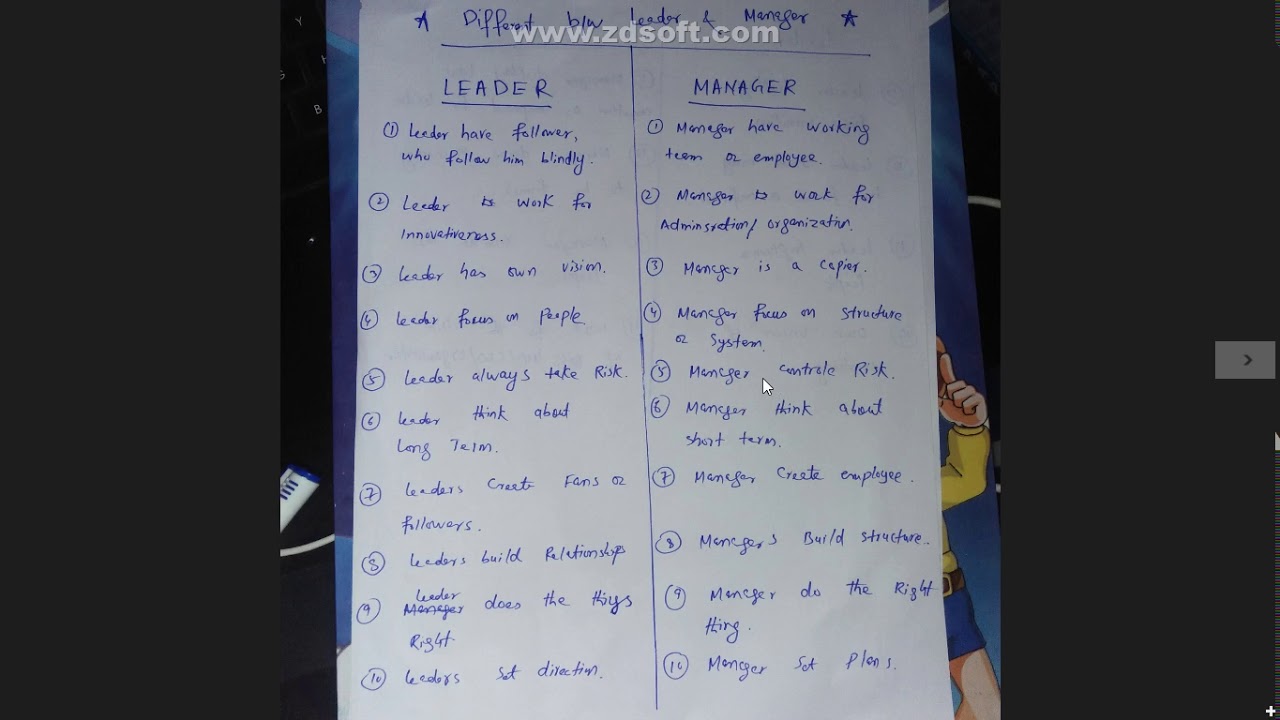 ★ Different b/w Leader & Manager ★
www.zdsoft.com
LEADER
① Leader have follower,
who follow him blindly.
② Leader is work for
Innovativeness.
③ Leader has own vision.
④ Leader focus on People
⑤ Leader always take Risk.
⑥ Leader think about
Long Term.
⑦ Leaders Create Fans or
followers.
⑧ Leaders build Relationships
Leader
⑨ Manager does the things
Right
⑩ Leaders set direction.
MANAGER
① Manager have working
team or employee.
② Manager is work for
Adminsration/ organization.
③ Manager is a copier.
④ Manager focus on structure
or System.
⑤ Manager controle Risk.
⑥ Manager think about
short term.
⑦ Manager Create employee.
⑧ Managers Build structure.
⑨ Manager do the Right
thing.
⑩ Manager Set Plans.
B